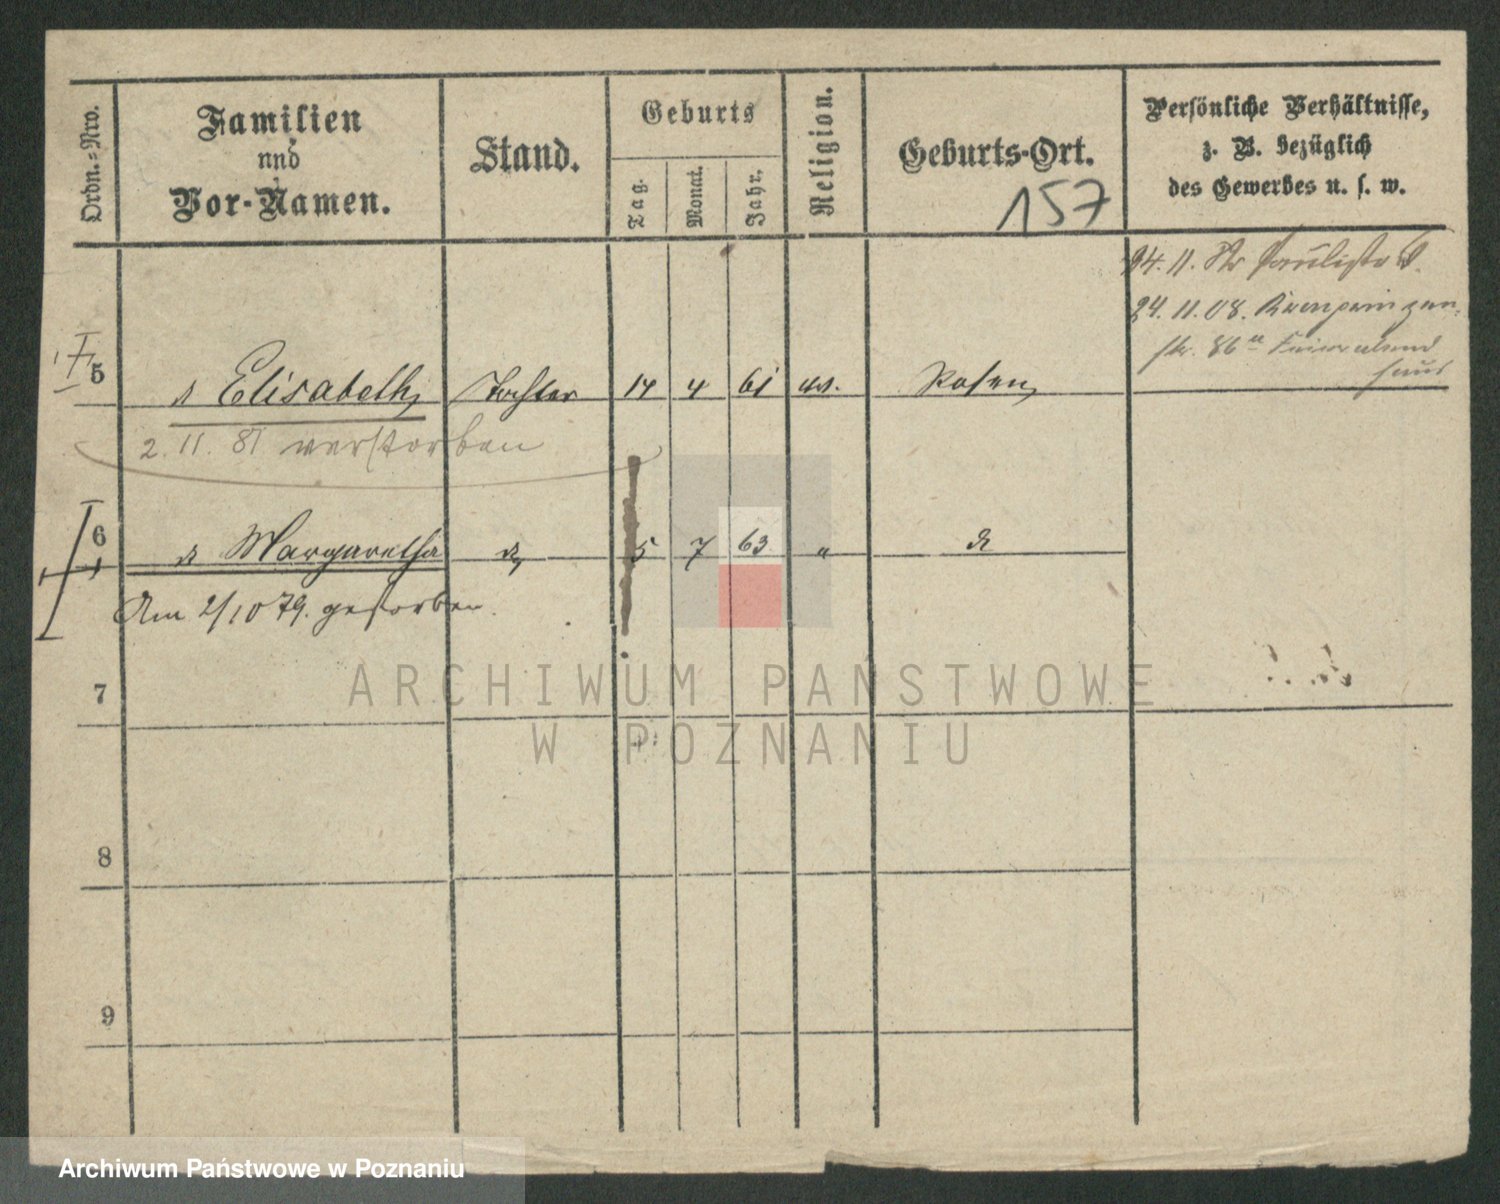 Ordn.=Nro.
Familien
und
Vor-Namen.
Stand.
Geburts
Tag.
Monat.
Jahr.
Religion.
Geburts-Ort.
157
Persönliche Verhältnisse,
z. B. bezüglich
des Gewerbes u. s. w.
24. 11.
24. 11. 08.
str. 86
haus
5
Elisabeth
Tochter
14
4
61
ev.
Posen
2. 11. 81 verstorben
6
Margaretha
5
7
63
"
Am 2/10 79. gestorben.
7
8
9
ARCHIWUM PAŃSTWOWE
W POZNANIU
Archiwum Państwowe w Poznaniu